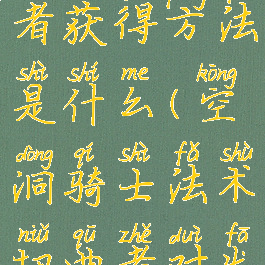 者获得方法
shì shí me kōng
是什么(空
dòng qí shì fǎ shù
洞骑士法术
niǔ qū zhě duì fā
扭曲者对